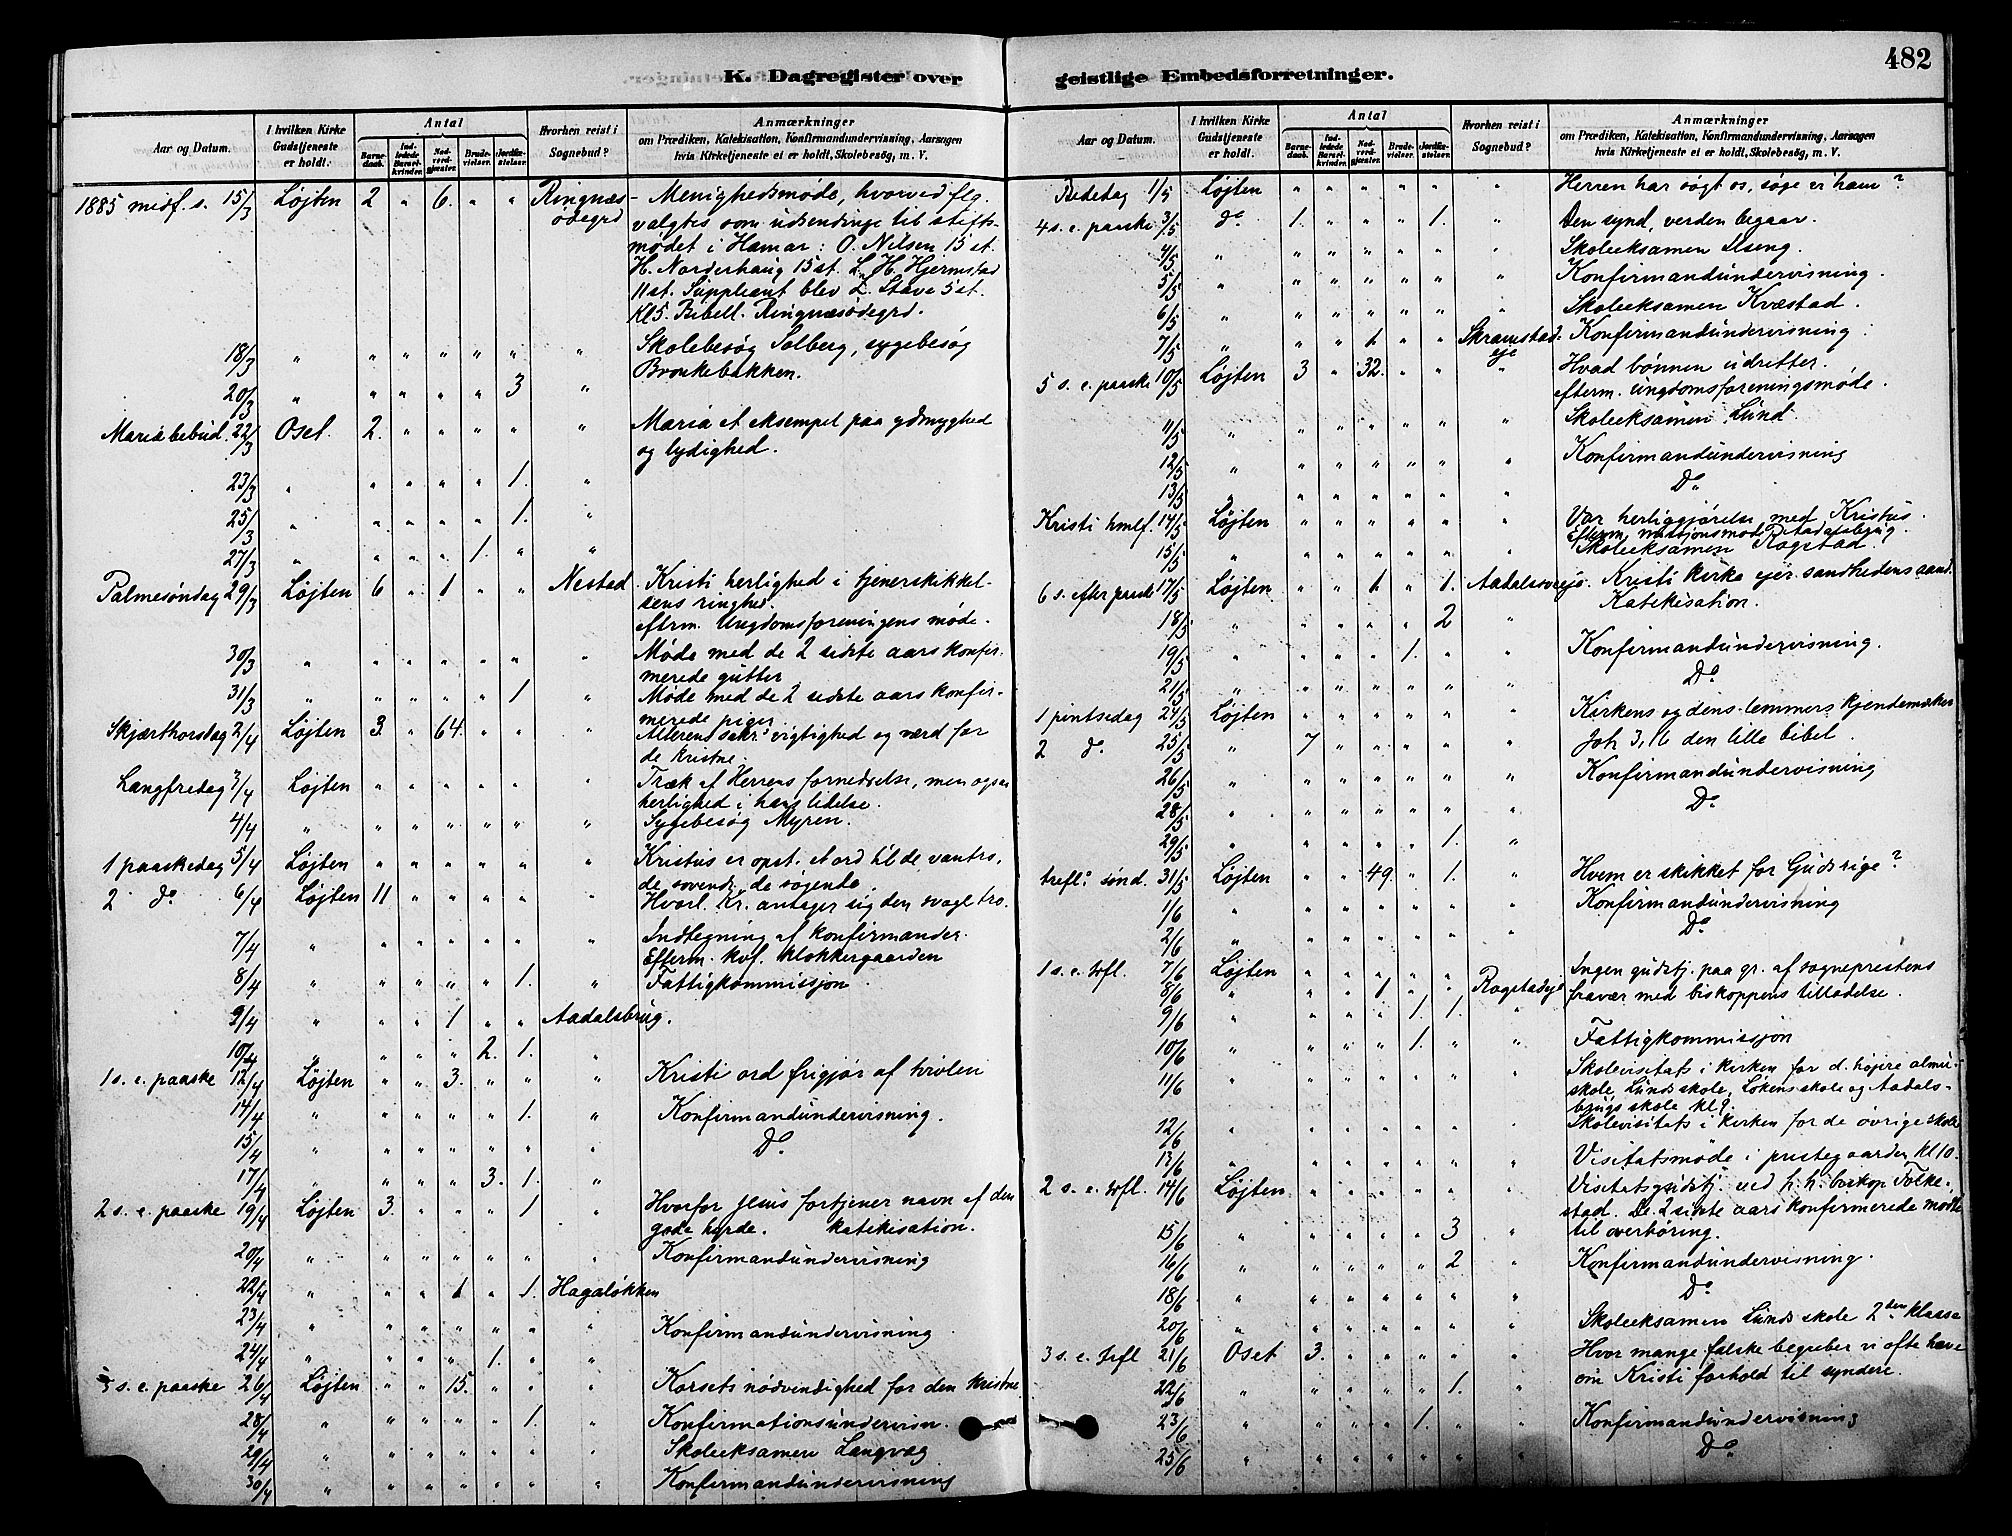 482
K. Dagregister over geistlige Embedsforretninger.
Aar og Datum.
I hvilken Kirke Gudstjeneste er holdt.
Antal
Barnedaab.
Indledede Barselkvinder.
Nadverdgjæster.
Brudevielser.
Jordfæstelser.
Hvorhen reist i Sognebud?
Anmærkninger
om Prædiken, Katekisation, Konfirmandundervisning, Aarsagen
hvis Kirketjeneste ei er holdt, Skolebesög, m. V.
1885 midf. s. 15/3 Løjten 2 " 6. " " Ringnæsødegrd Menighedsmøde, hvorved flg.
valgtes som udsendinge til stifts-
mødet i Hamar: O. Nilsen 15 st.
H. Norderhaug 15 st. L. H. Hjermstad
11 st. Suppleant blev L. Stave 5 st.
Kl 5. Bibell. Ringnæsødegrd.
18/3 " " " " " " " Skolebesøg Solberg, sygebesøg
Bronkebakken.
20/3 " " " " " 3 "
Maria bebud. 22/3 Oset. 2. " " " " " Maria et eksempel paa ydmyghed
og lydighed.
23/3 " " " " " 1. "
25/3 " " " " " 1. "
27/3 " " " " 1. " "
Palmesøndag 29/3 Løjten 6 " 1 " " Nestad Kristi herlighed i tjenerskikkel-
sens ringhed.
efterm. Ungdomsforeningens møde.
30/3 " " " " " " " Møde med de 2 sidste aars konfir-
merede gutter
31/3 " " " " " 1 " Møde med de 2 sidste aars konfir-
merede piger
Skjærthorsdag 2/4 Løjten 3. " 64. " " " Alterens sakr. vigtighed og værd for
de kristne.
Langfredag 3/4 Løjten " " " " " " Træk af Herrens fornedrelse, men ogsaa
herlighed i hans lidelse.
4/4 " " " " " " " Sygebesøg Myren.
1 paaskedag 5/4 Løjten " " " " " " Kristus er opst. et ord til de vantro,
de sovende, de søgende.
2 do 6/4 Løjten 11 " " " " " Hvorl. Kr. antager sig den svage tro.
7/4 " " " " " " " Indtegning af konfirmander.
Efterm. kvf. klokkergaarden
8/4 " " " " " 1. " Fattigkommissjon
9/4 " " " 1 " " Aadalsbrug.
10/4 " " " " 2. 1. "
1 s. e. paaske 12/4 Løjten " " 3. " " " Kristi ord frigjør af tvivlen
14/4 " " " " " 1. " Konfirmandundervisning.
15/4 " " " " " " " Do
17/4 " " " " 3. 1. "
2 s. e. paaske 19/4 Løjten 3. " " " 1 " Hvorfor Jesus fortjener navn af den
gode hyrde. Katekisation.
20/4 " " " " " " " Konfirmandundervisning
22/4 " " " 1 " 1. Hagaløkken
23/4 " " " " " " " Konfirmandundervisning
24/4 " " " " 1. " "
3 s. e. paaske 26/4 Løjten " " 15. " " " Korsets nødvendighed for den kristne
28/4 " " " " " 1. " Konfirmationsundervisn.
29/4 " " " " " " " Skoleeksamen Langvag
30/4 " " " " " " " Konfirmandundervisning
Aar og Datum.
I hvilken Kirke Gudstjeneste er holdt.
Antal
Barnedaab.
Indledede Barselkvinder.
Nadverdgjæster.
Brudevielser.
Jordfæstelser.
Hvorhen reist i Sognebud?
Anmærkninger
om Prædiken, Katekisation, Konfirmandundervisning, Aarsagen
hvis Kirketjeneste ei er holdt, Skolebesög, m. V.
Bededag 1/5 Løjten " " " " " " Herren har søgt os, søge vi ham?
4 s. e. paaske 3/5 do 1. " " " 1. " Den synd, verden begaar.
4/5 " " " " " " " Skoleeksamen Ilseng.
5/5 " " " " " " " Konfirmandundervisning.
6/5 " " " " " " " Skoleeksamen Kvæstad.
7/5 " " " 1. " " Skramstadeje Konfirmandundervisning.
5 s. e. paaske 10/5 Løjten 3 " 32. " " " Hvad bønnen udretter.
efterm. ungdomsforeningsmøde.
11/5 " " " " " " " Skoleeksamen Lund.
12/5 " " " " " " " Konfirmandundervisning
13/5 " " " " " " " Do
Kristi hmlf. 14/5 Løjten " " " " " " Vor herliggjørelse med Kristus.
Efterm. missjonsmøde paa Aadalsbrug.
15/5 " " " " " " " Skoleeksamen Rogstad.
6 s. efter paaske 17/5 Løjten " " 1. " 1. Aadalsvereje. Kristi kirke ejer sandhedens aand.
Katekisation.
18/5 " " " " " 2 "
19/5 " " " " 1. " " Konfirmandundervisning.
21/5 " " " " " " " Do
1 pintsedag 24/5 Løjten " " " " " " Kirkens og dens lemmers kjendemærker
2 do 25/5 " 7 " " " " " Joh 3,16 den lille bibel.
26/5 " " " " " " " Konfirmandundervisning
28/5 " " " " " " " Do
29/5 " " " " " 1. "
trefl. sønd. 31/5 Løjten " " 49. " 1. " Hvem er skikket for Guds rige?
1/6 " " " " " " " Konfirmandundervisning
2/6 " " " " " " " Do
1 s. e. trfl. 7/6 Løjten " " " " " " Ingen gudstj. paa gr. af sogneprestens
8/6 " " " 1 " " Rogstadeje fravær med biskoppens tilladelse.
9/6 " " " " 1. 1. "
10/6 " " " " 1. " " Fattigkommissjon
11/6 " " " " " " " Skolevisitats i kirken for d. højere almue
skole, Lunds skole, Løkens skole og Aadals-
brugs skole kl 9.
12/6 " " " " " " " Skolevisitats i kirken for de øvrige skole
13/6 " " " " " " " Visitatsmøde i prestegaarden kl 10.
2 s. e. trfl. 14/6 Løjten " " " " " " Visitatsgudstj. ved h. h. biskop Folke-
stad. De 2 sidste aars konfirmerede mødte
15/6 " " " " " 3 " til overhøring.
16/6 " " " " " 2 " Konfirmandundervisning.
18/6 " " " " " " " Do
20/6 " " " " " " " Skoleeksamen Lunds skole 2den klasse
3 s. e. trfl 21/6 Oset 3. " " " " " Hvor mange falske begreber vi ofte have
om Kristi forhold til syndere.
22/6 " " " " " 1. "
23/6 " " " " 1. " " Konfirmandundervisning
25/6 " " " " " " " Do